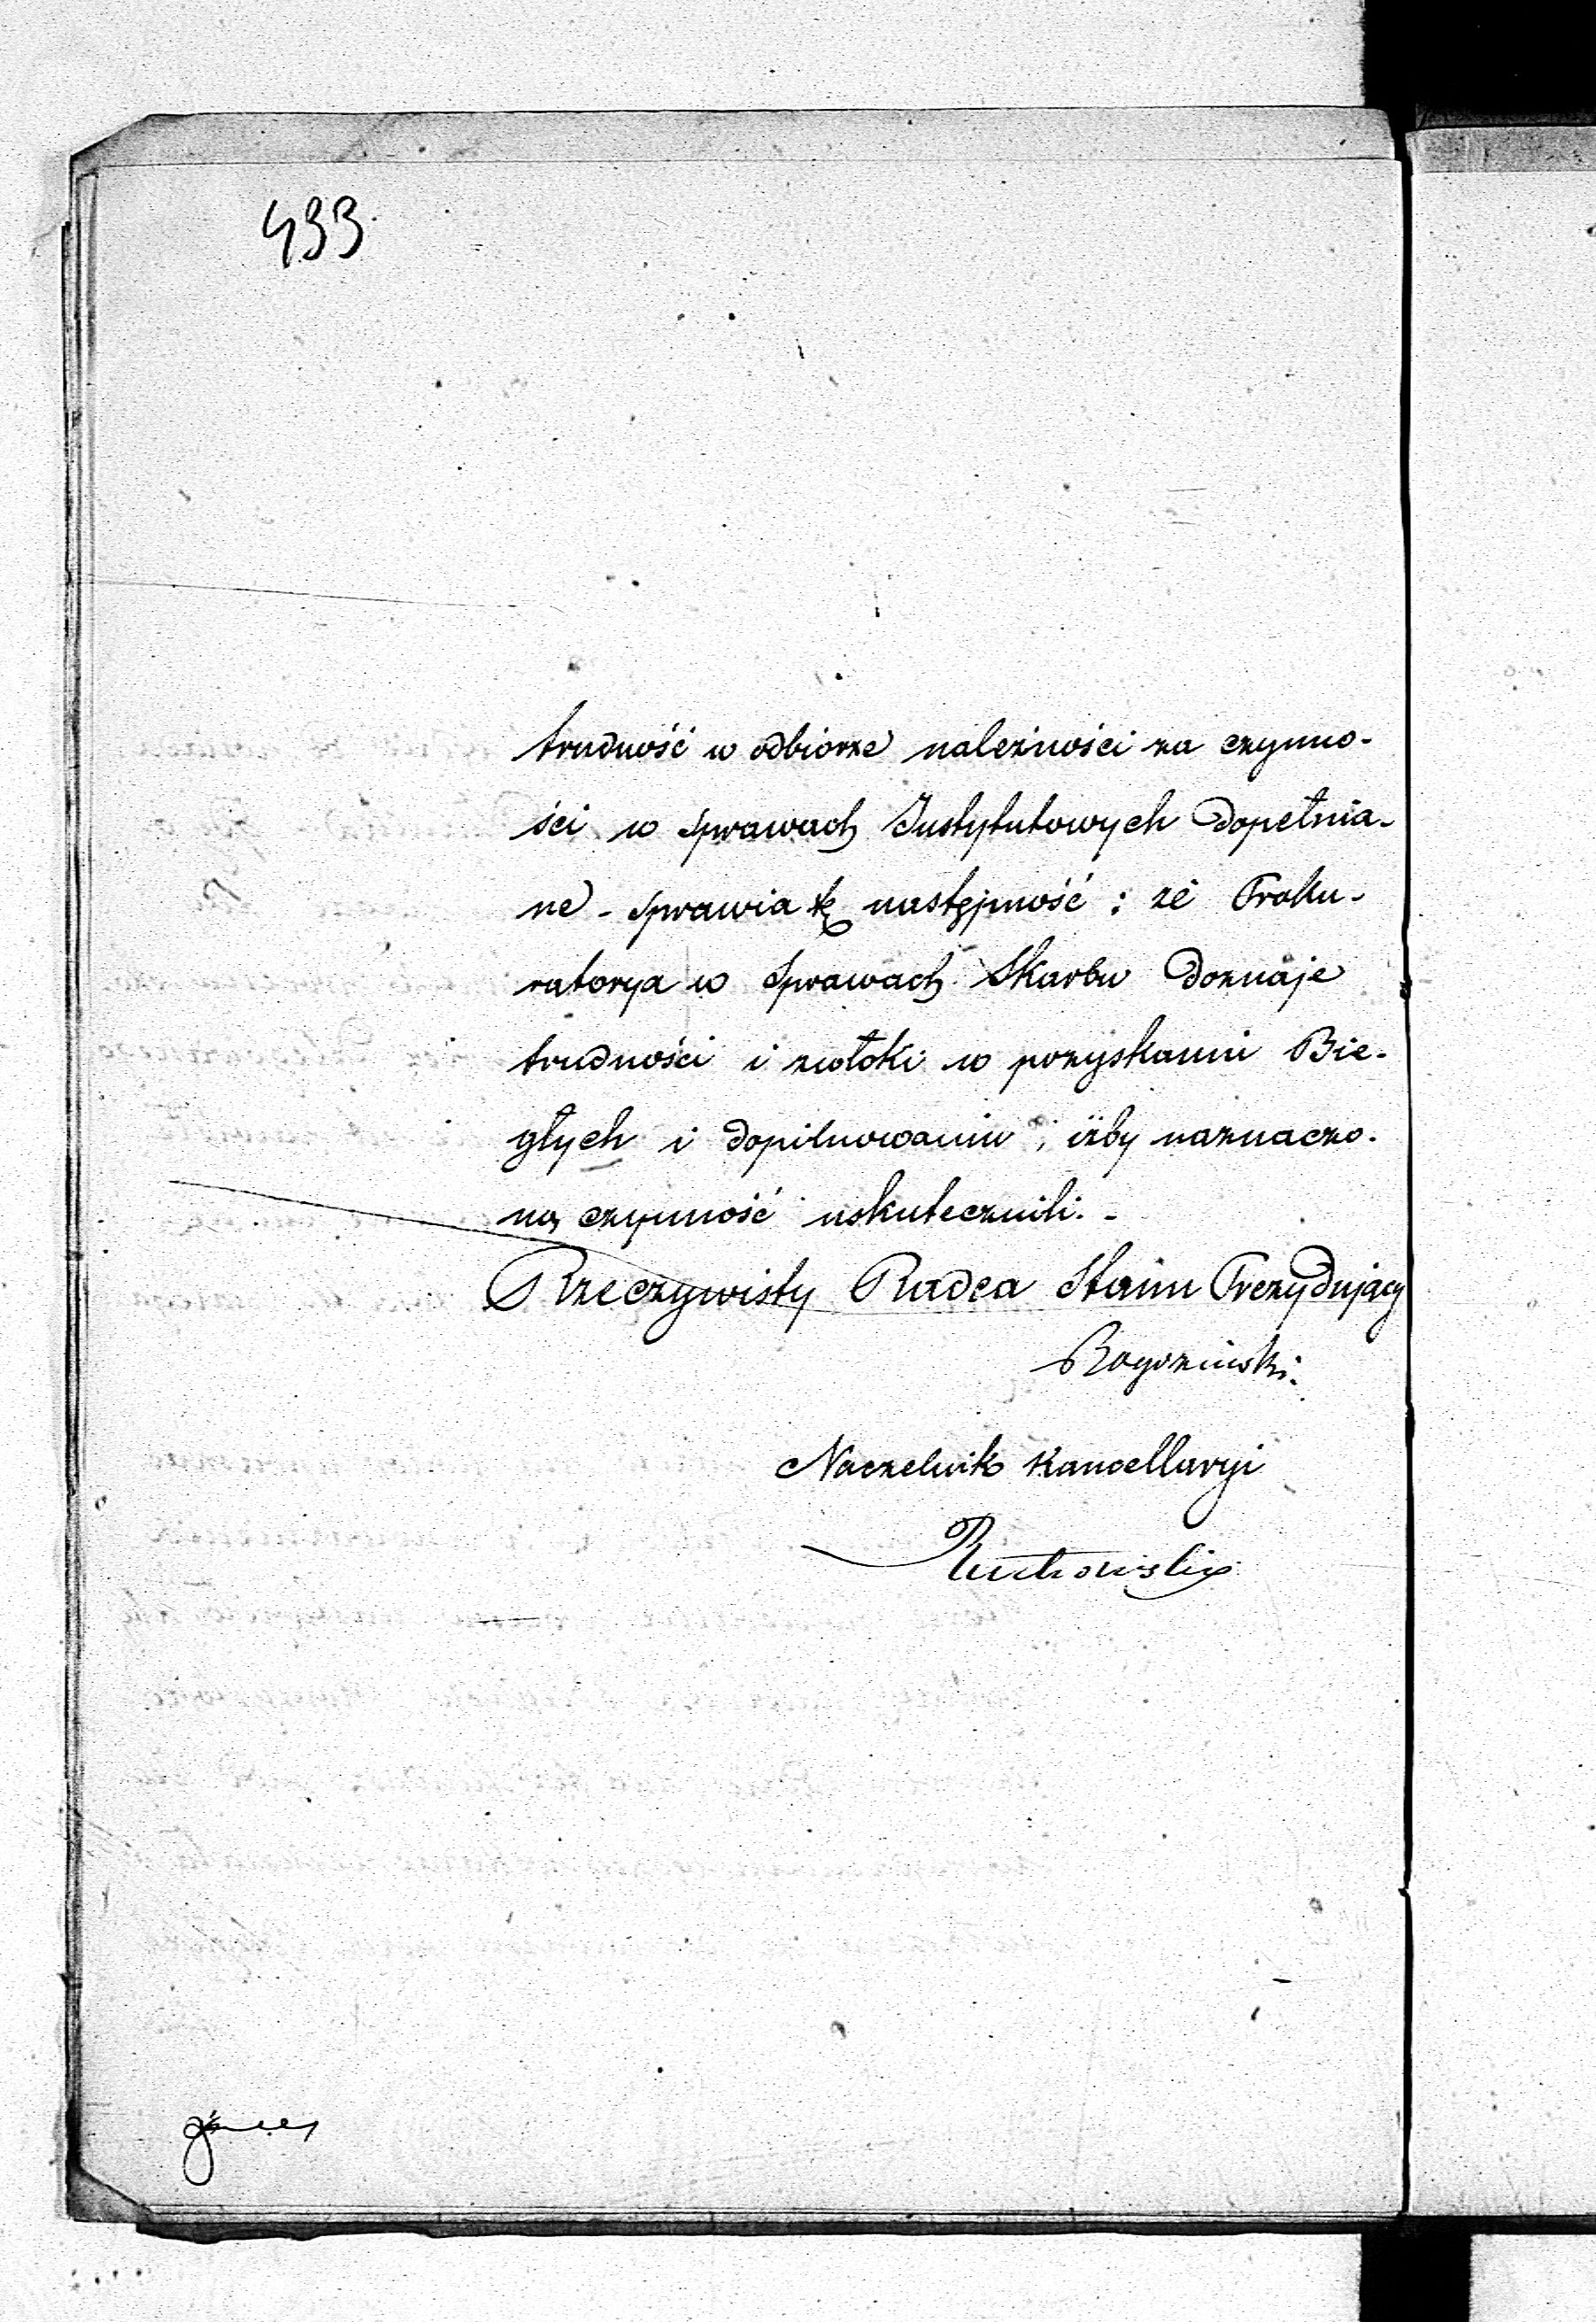 433.
trudność w odbiorze należności za czynno-
ści w sprawach Instytutowych dopełnia-
ne - sprawia tę następność : że Proku-
ratorya w Sprawach Skarbu doznaje
trudności i zwłoki w pozyskaniu Bie-
głych i dopilnowaniu, iżby naznaczo-
ną czynność uskutecznili. -
Rzeczywisty Radca Stanu Prezydujący
Rogoziński.
Naczelnik Kancellaryi